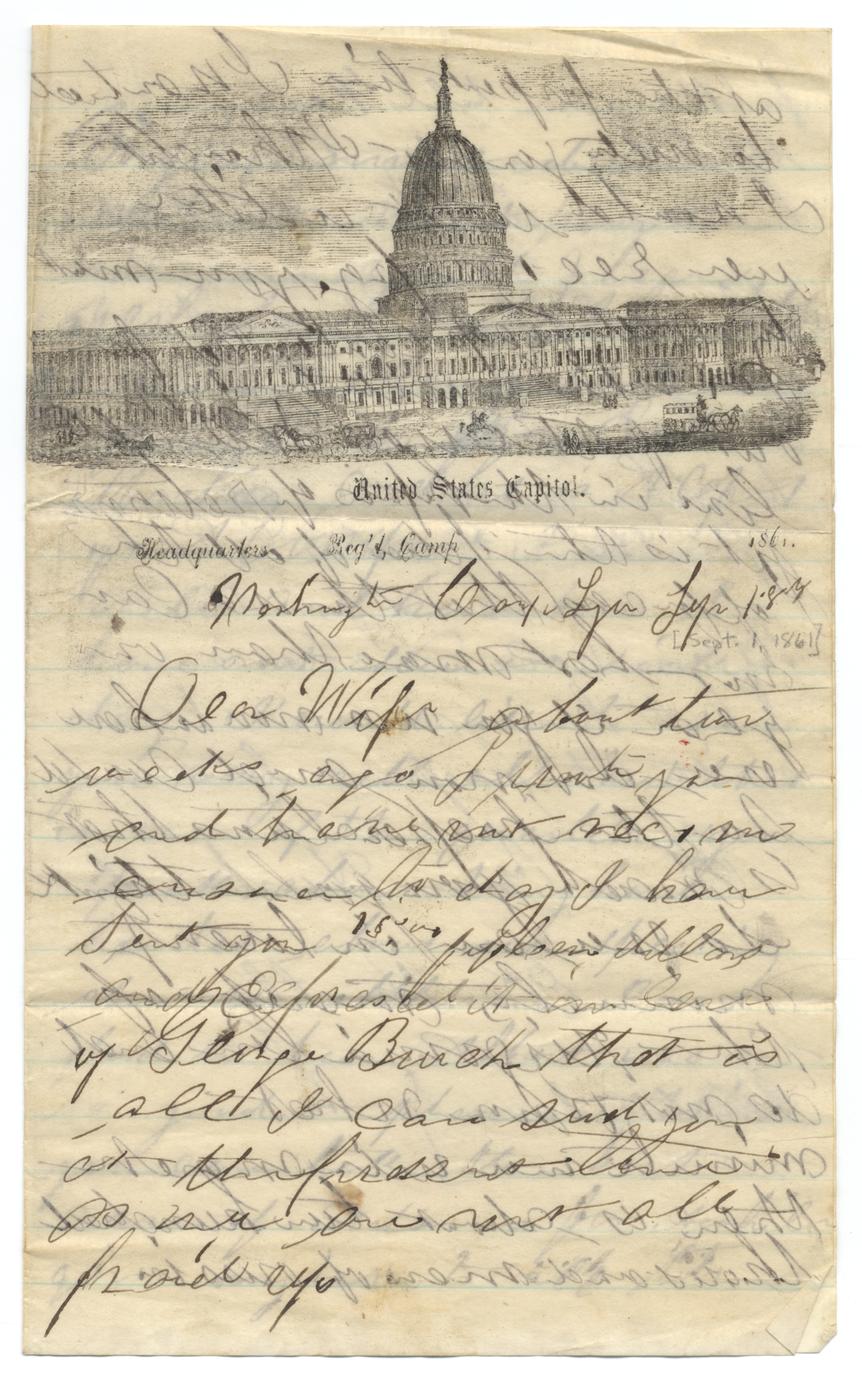 United States Capitol.
Headquarters Reg't, Camp 1861.
Washington
[Sept. 1, 1861]
Dear Wife about two
weeks ago I wrote you
and have not reciv
answer to day I have
sent you 15,00 fifteen dollars
and Expresed it in Care
of George Burch that is
all I can send you
at the present time
as we are not all
paid up